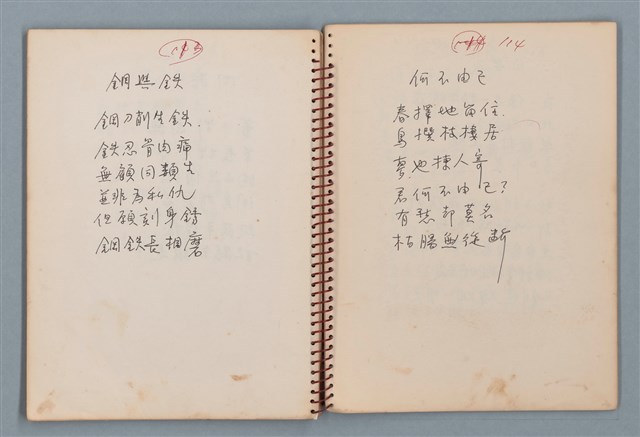 鋼與鉄
鋼刀削生鉄.
鉄忍骨肉痛
無顧同類生
並非為私仇
但願刻身鑄
鋼鉄長相磨
114
何不由己
春擇地留住.
鳥撰枝棲居
夢也揀人寄
君何不由己?
有愁却莫名
枯腸無從斷